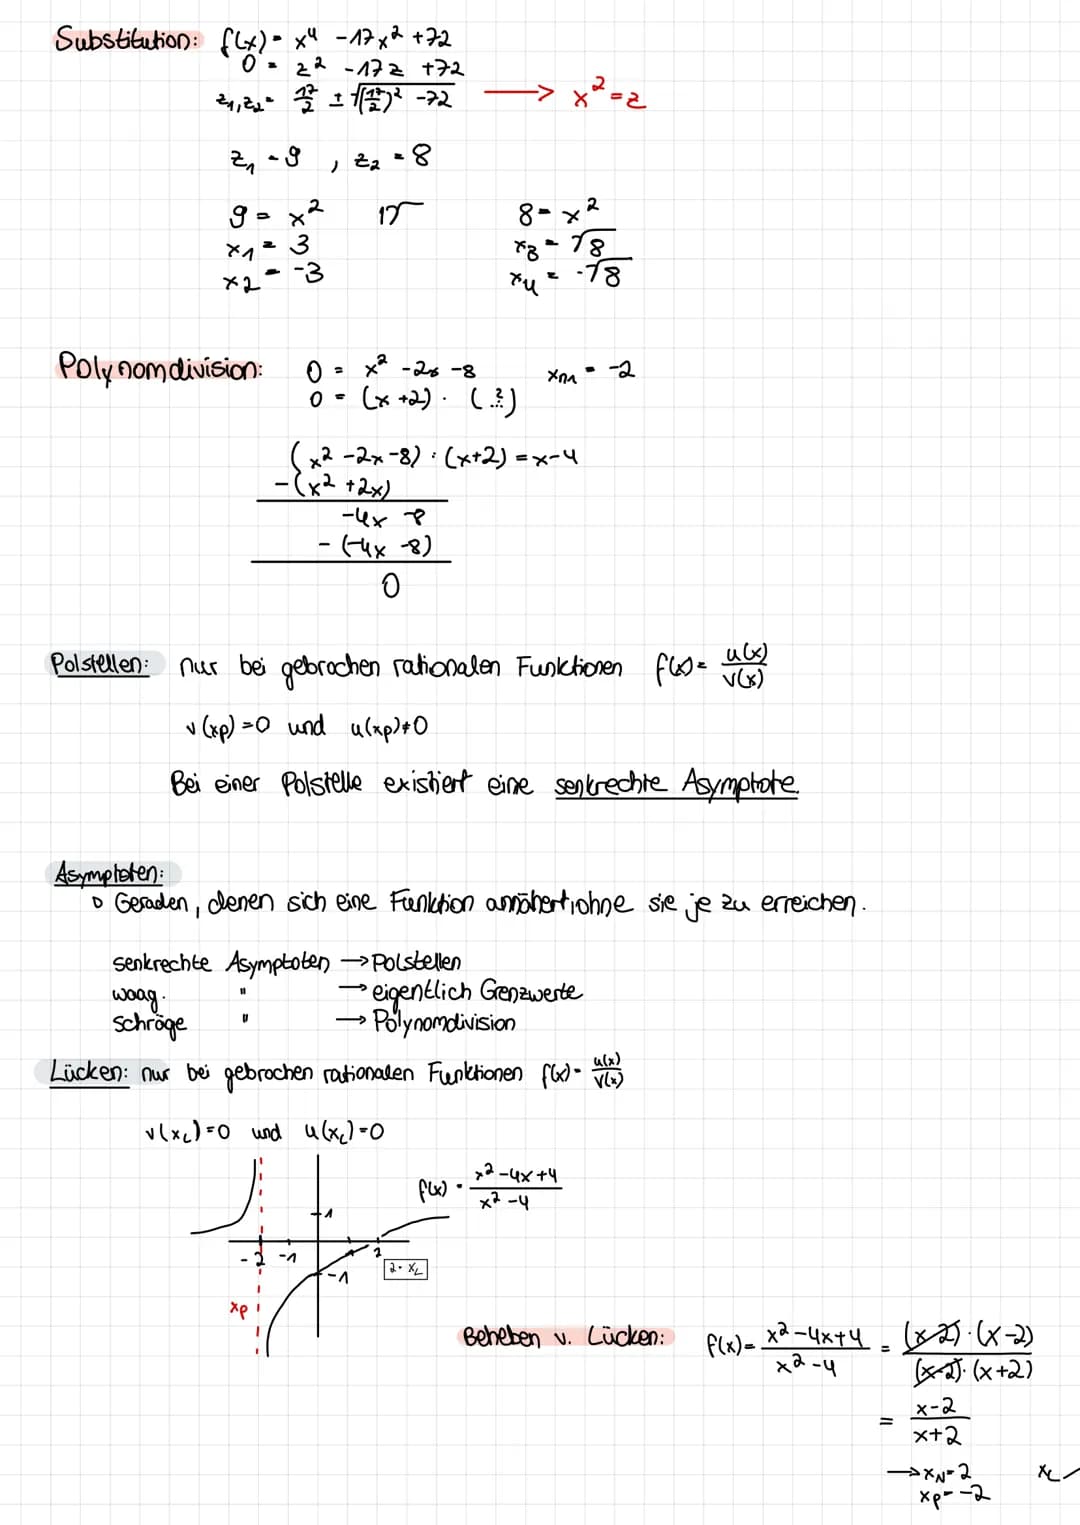 Substitution: f(x) = x⁴ - 17x² + 72
0 = z² - 17z + 72
z₁,z₂ = 17/2 ± √((17/2)² - 72) → x² = z
z₁ = 9 , z₂ = 8
9 = x² |√ 8 = x²
x₁ = 3 x₃ = √8
x₂ = -3 x₄ = -√8
Polynomdivision: 0 = x² - 2x - 8 xₙ₁ = -2
0 = (x + 2) · (...?)
(x² - 2x - 8) : (x+2) = x - 4
-(x² + 2x)
-4x - 8
- (-4x - 8)
0
Polstellen: nur bei gebrochen rationalen Funktionen f(x) = u(x)/v(x)
v(xp) = 0 und u(xp) ≠ 0
Bei einer Polstelle existiert eine senkrechte Asymptote.
Asymptoten:
Geraden, denen sich eine Funktion annähert, ohne sie je zu erreichen.
senkrechte Asymptoten → Polstellen
waag. " → eigentlich Grenzwerte
schräge " → Polynomdivision
Lücken: nur bei gebrochen rationalen Funktionen f(x) = u(x)/v(x)
v(x_L) = 0 und u(x_L) = 0
f(x) = (x² - 4x + 4)/(x² - 4)
1
-2 -1 2
-1
2 = x_L
xp
Beheben v. Lücken: f(x) = (x² - 4x + 4)/(x² - 4) = ((x-2)·(x-2))/((x-2)·(x+2))
= (x-2)/(x+2)
→ x_N = 2 x_L
xp = -2